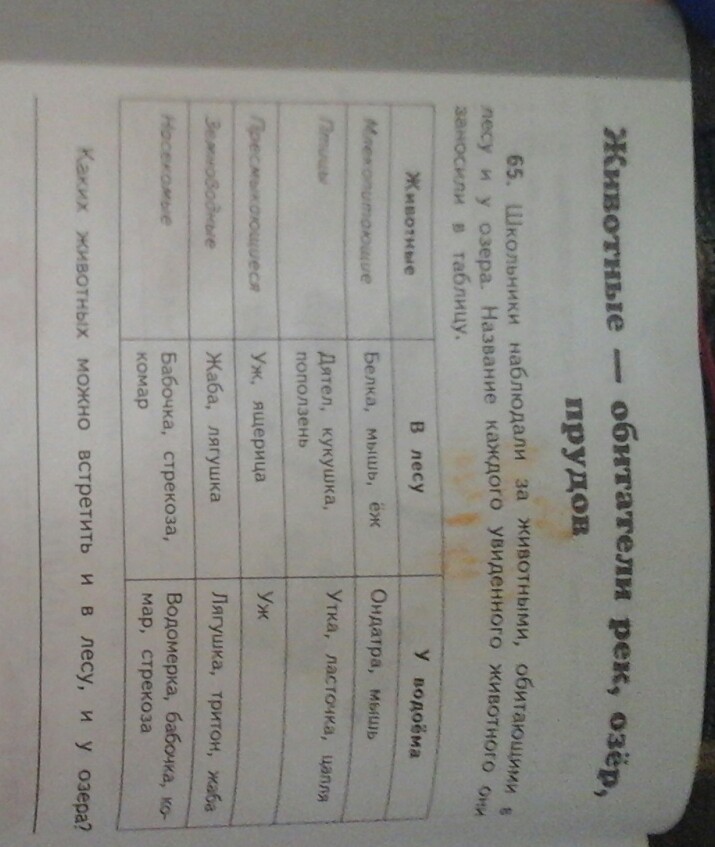 Животные — обитатели рек, озёр,
прудов
65. Школьники наблюдали за животными, обитающими в
лесу и у озера. Название каждого увиденного животного они
заносили в таблицу.
Животные В лесу У водоёма
Млекопитающие Белка, мышь, ёж Ондатра, мышь
Птицы Дятел, кукушка, Утка, ласточка, цапля
поползень
Пресмыкающиеся Уж, ящерица Уж
Земноводные Жаба, лягушка Лягушка, тритон, жаба
Насекомые Бабочка, стрекоза, Водомерка, бабочка, ко-
комар мар, стрекоза
Каких животных можно встретить и в лесу, и у озера?